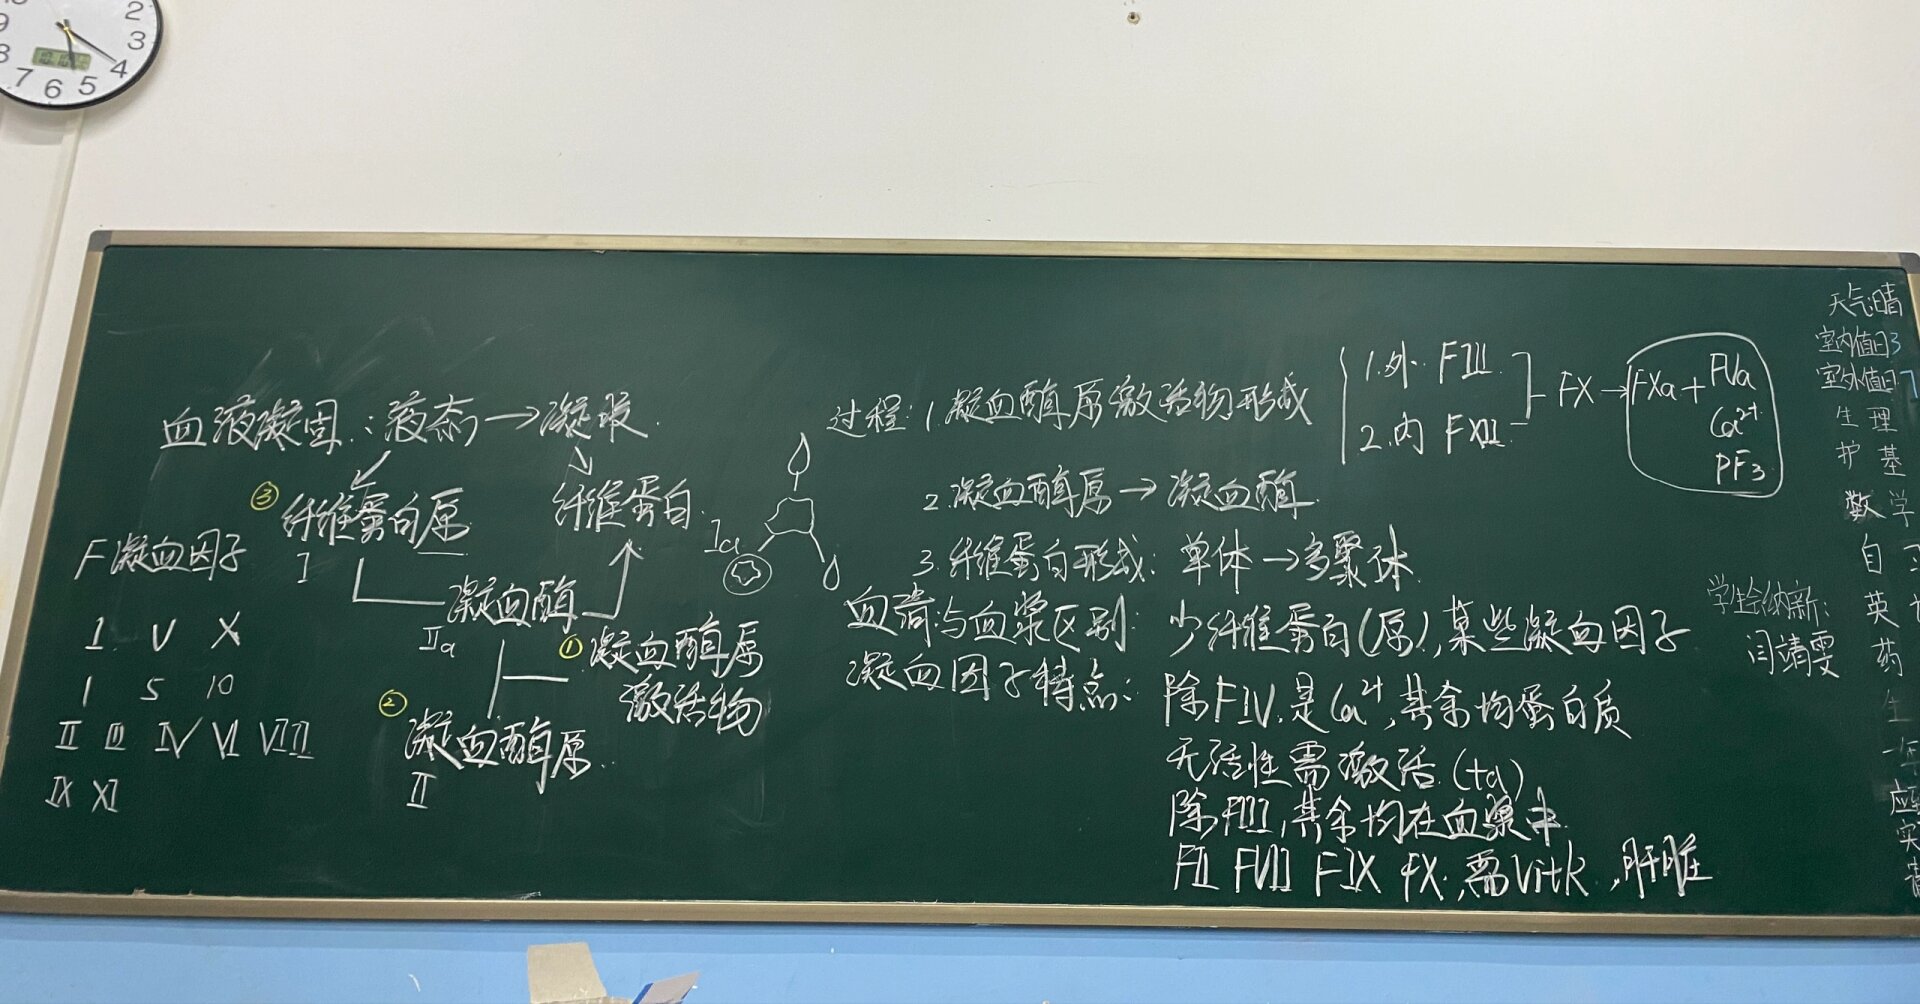 2
3
4
5
6
7
8
9
血液凝固:液态→凝胶
③ 纤维蛋白原
I
纤维蛋白
凝血酶
IIa
① 凝血酶原
激活物
② 凝血酶原
II
F 凝血因子
I V X
1 5 10
II III IV VI VII
IX XI
Ia
过程:1.凝血酶原激活物形成
1.外 FIII
2.内 FXII
FX→FXa+
FVa
Ca²⁺
PF3
2.凝血酶原→凝血酶
3.纤维蛋白形成:单体→多聚体
血清与血浆区别:少纤维蛋白(原),某些凝血因子
凝血因子特点:除FIV是Ca²⁺,其余均蛋白质
无活性需激活(+a)
除FIII,其余均在血浆中
FII FVII FIX FX,需VitK,肝脏
学生会纳新:
闫靖雯
天气:晴
室内值日3
室外值日7
生理
护基
数学
自
英
药
生
应
实